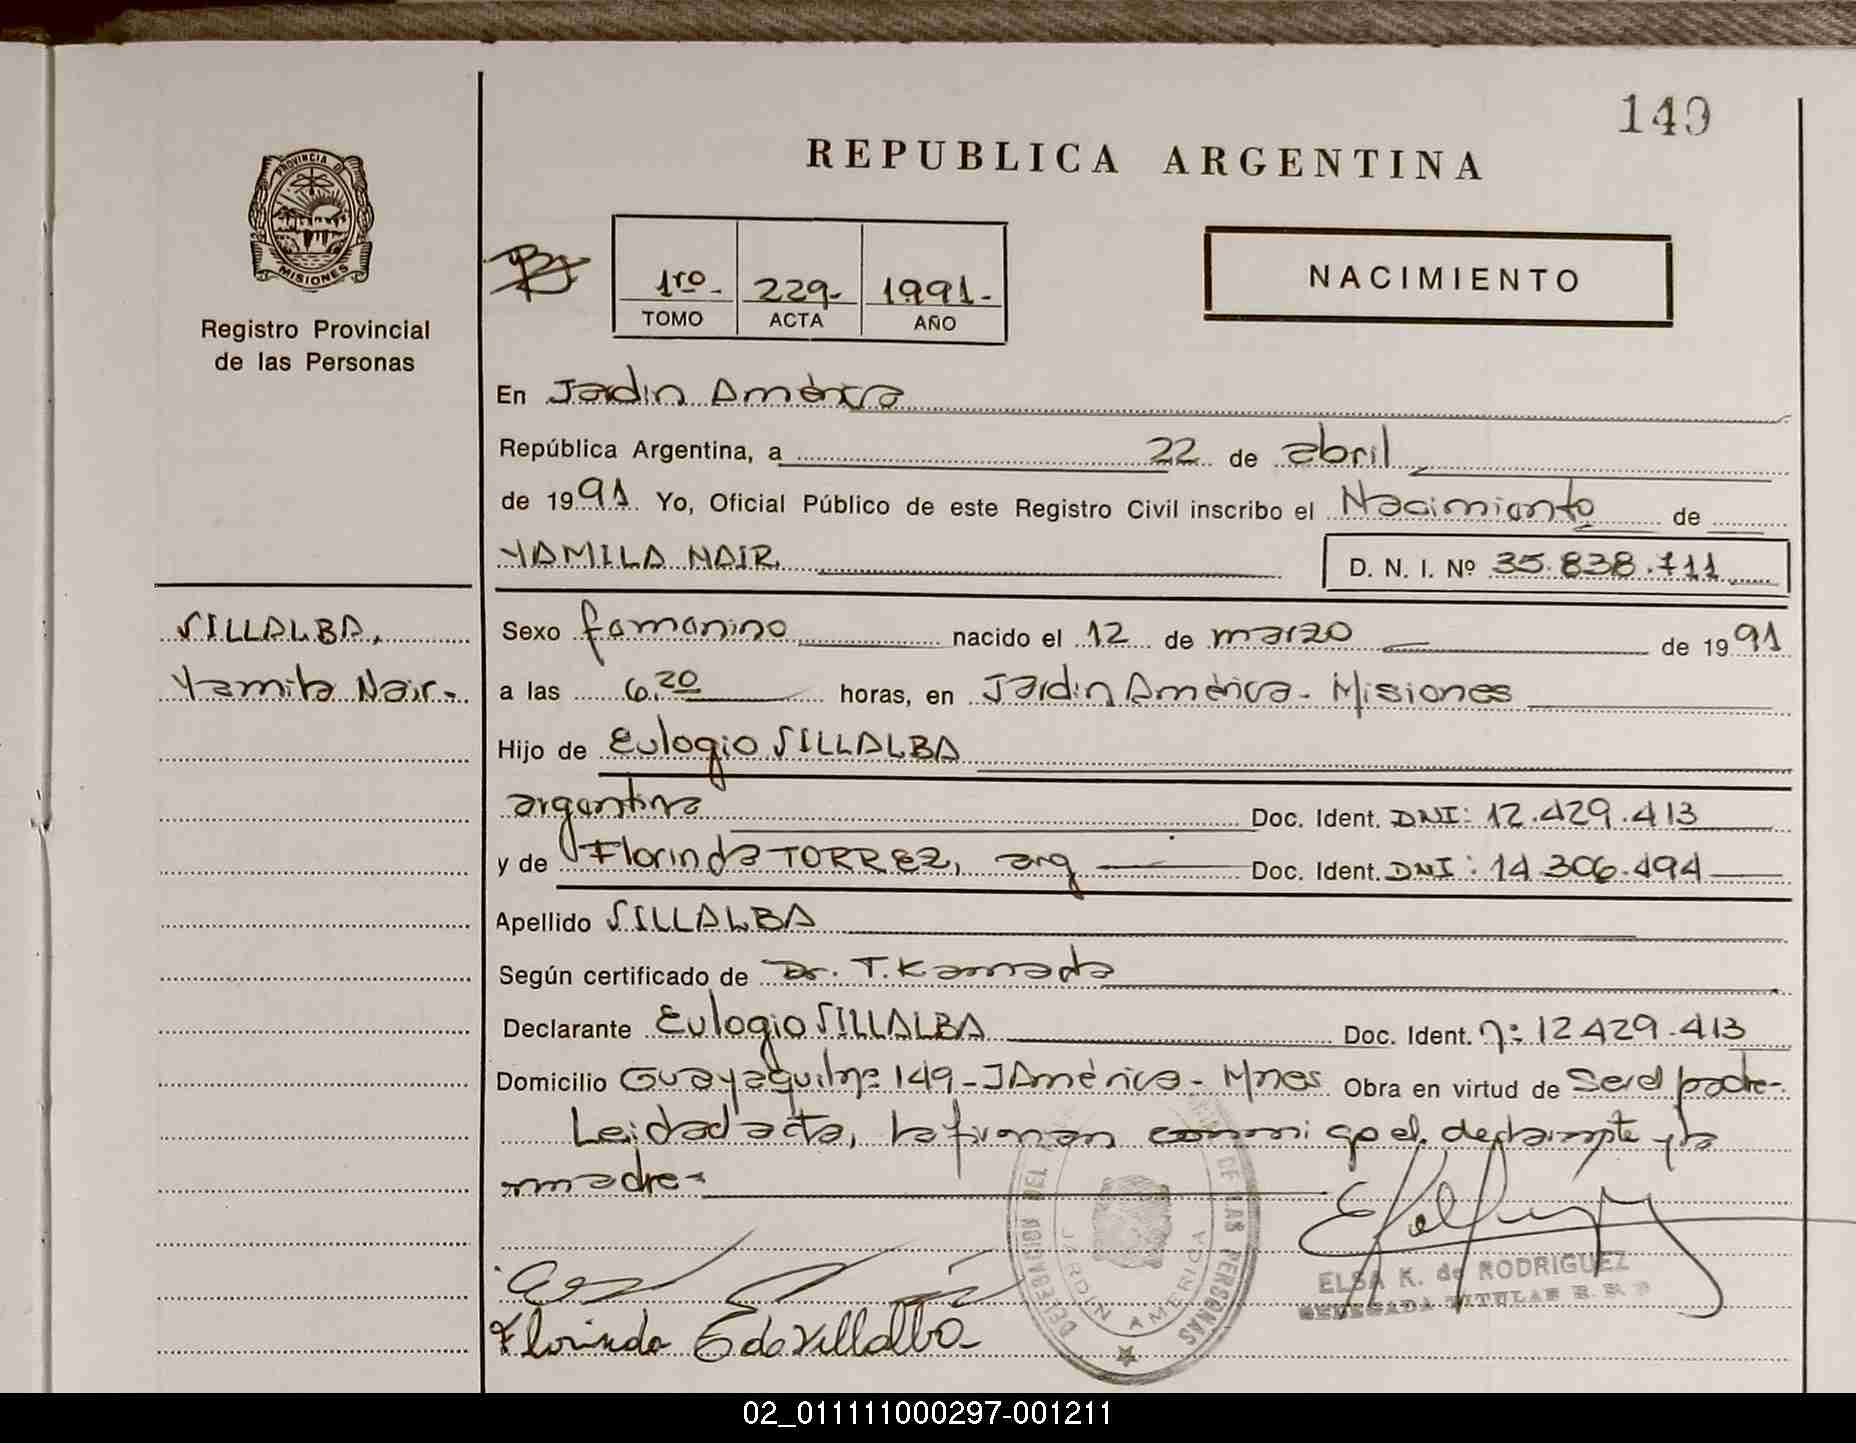 149
REPUBLICA ARGENTINA
PROVINCIA DE
MISIONES
Registro Provincial
de las Personas
1ro.- 229- 1991.-
TOMO ACTA AÑO
NACIMIENTO
En Jardin América
República Argentina, a 22 de abril
de 1991 Yo, Oficial Público de este Registro Civil inscribo el Nacimiento de
YAMILA NAIR
D. N. I. Nº 35.838.711
VILLALBA,
Yamila Nair.-
Sexo femenino nacido el 12 de marzo de 1991
a las 6.20 horas, en Jardin América - Misiones
Hijo de Eulogio VILLALBA
argentina Doc. Ident. DNI: 12.429.413
y de Florinda TORREZ, arg Doc. Ident. DNI: 14.306.494
Apellido VILLALBA
Según certificado de Dr. T. Kamada
Declarante Eulogio VILLALBA Doc. Ident. nº: 12.429.413
Domicilio Guayaquil nº 149 - J América - Mnes Obra en virtud de Ser el padre-.
Leida el acta, la firman conmigo el declarante y la
madre-
DELEGACION DEL DE LAS PERSONAS
JARDIN AMERICA
ELSA K. de RODRIGUEZ
DELEGADA TITULAR R. P. P
Florinda E de Villalba
02_011111000297-001211